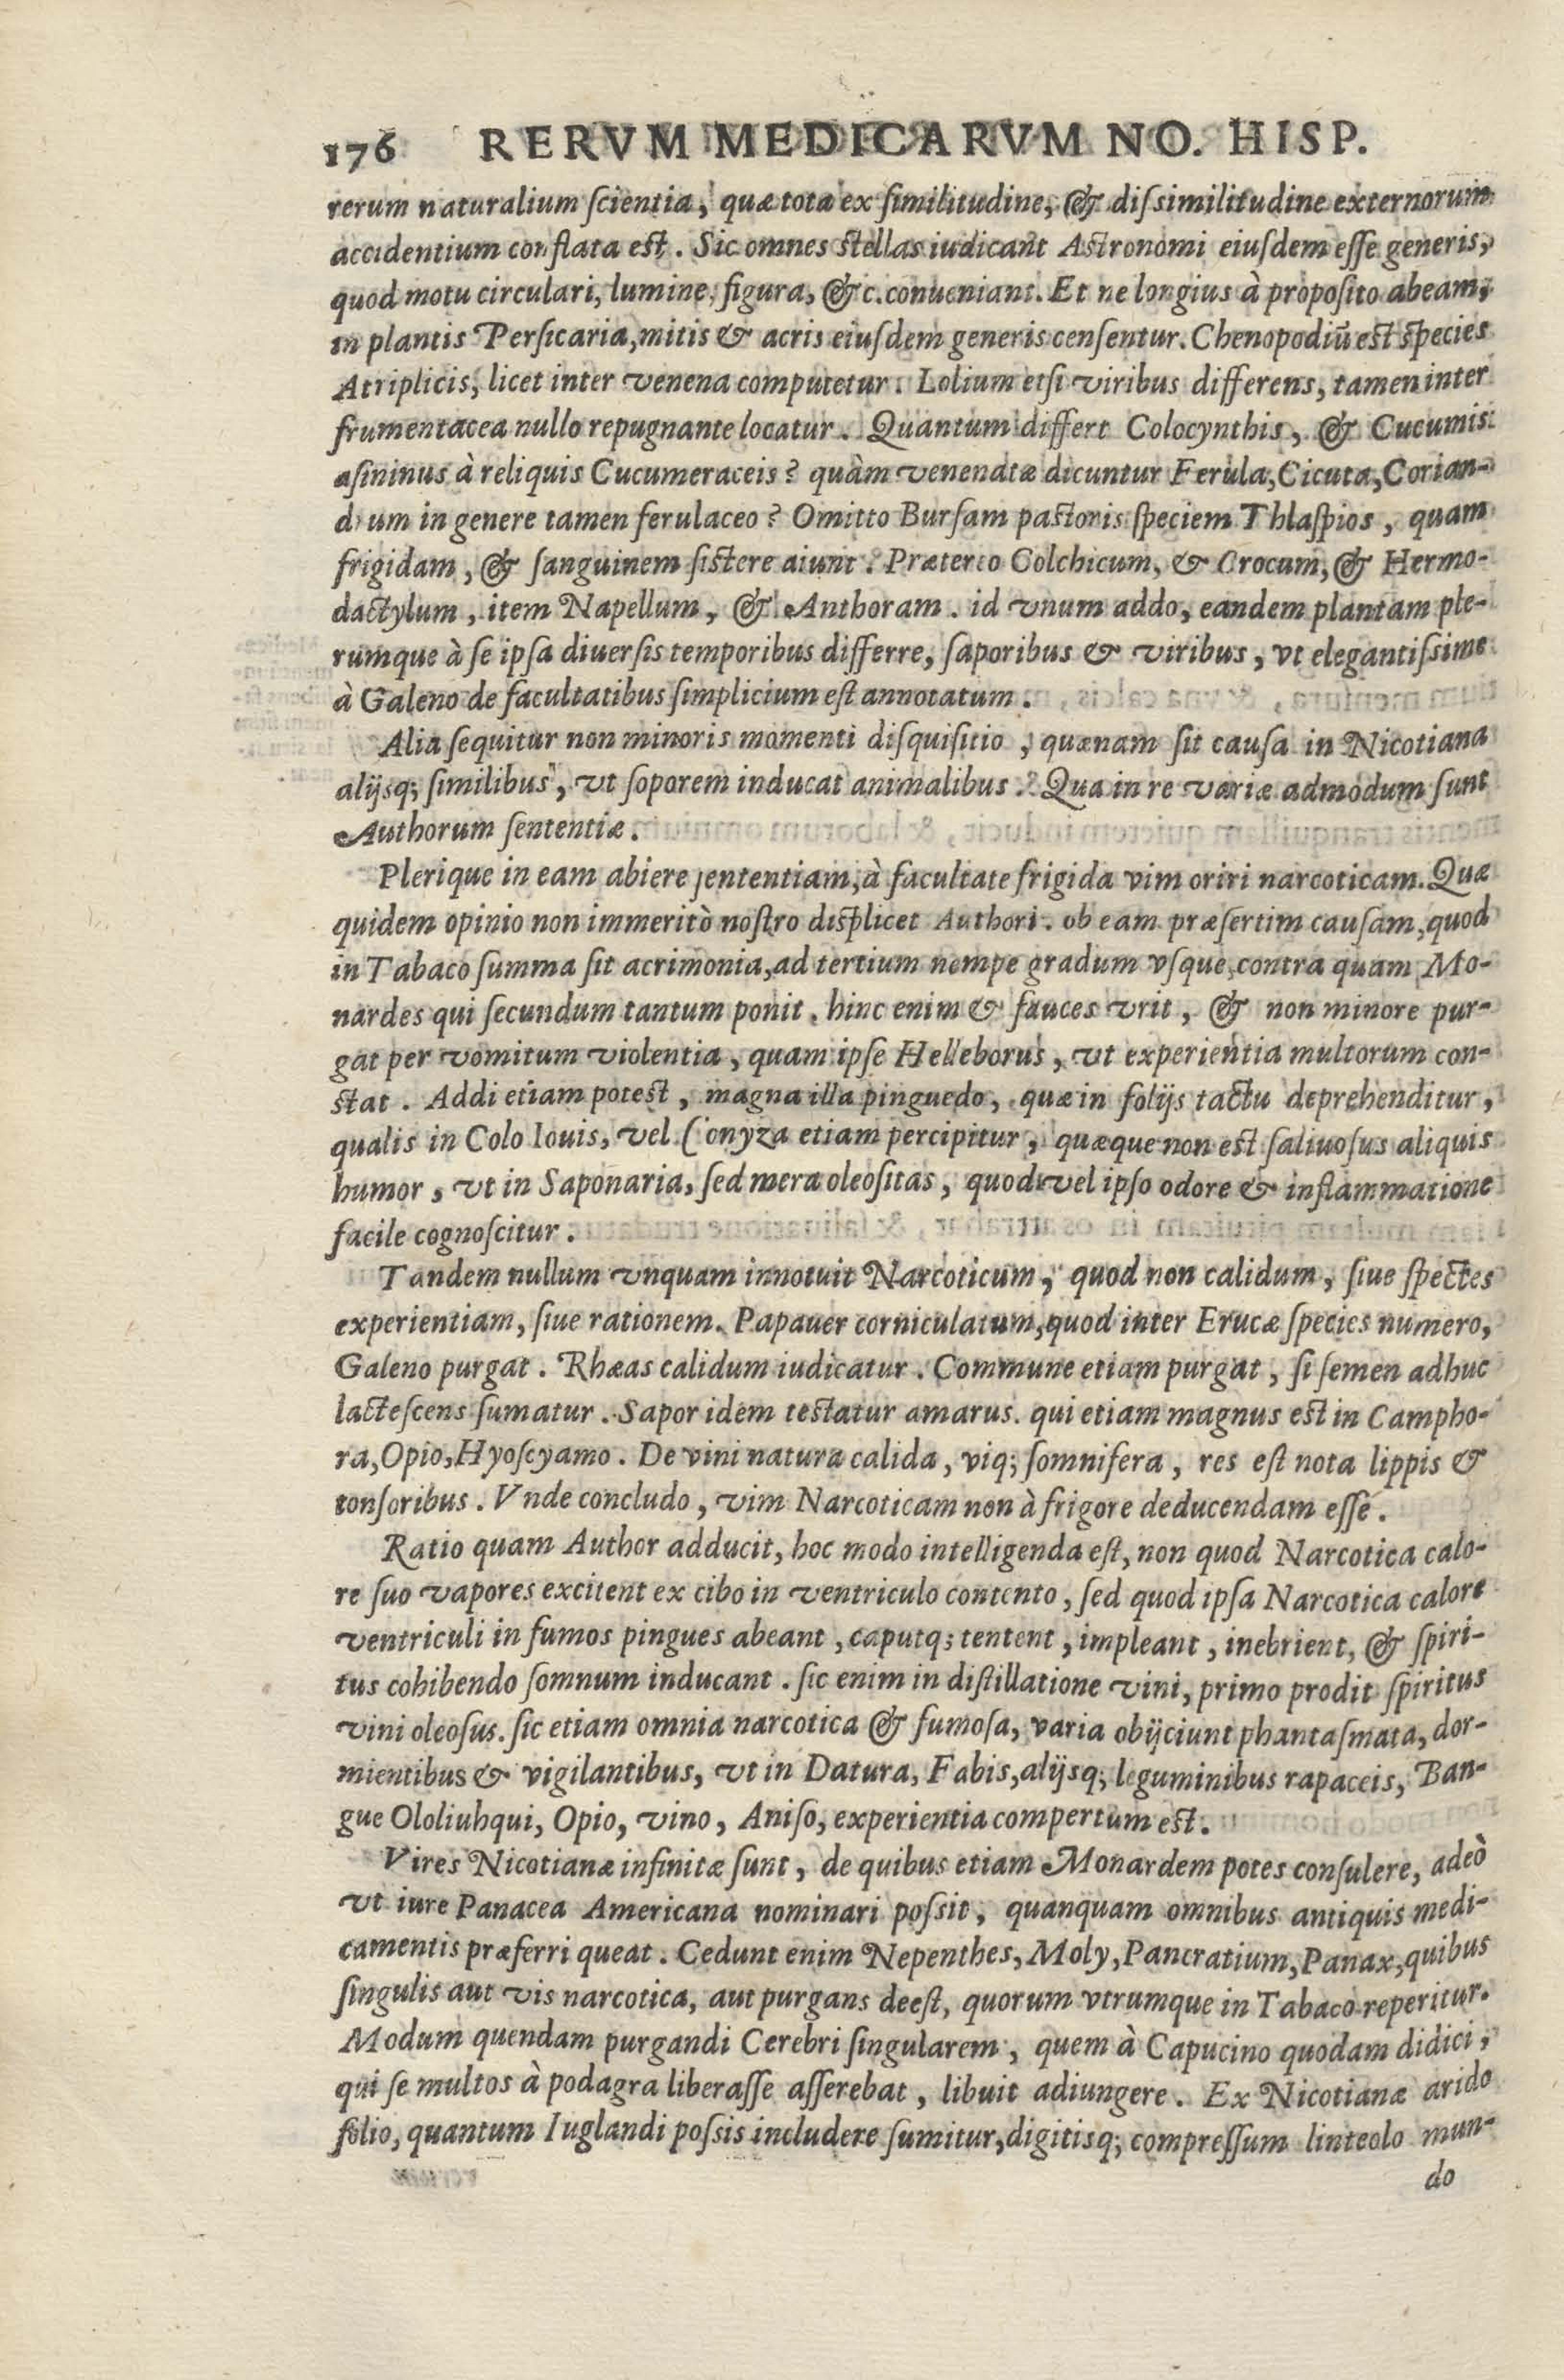 176 RERVM MEDICARVM NO. HISP.
rerum naturalium ſcientia, quæ tota ex ſimilitudine, & diſsimilitudine externorum
accidentium conflata est. Sic omnes stellas iudicant Astronomi eiuſdem eſſe generis,
quod motu circulari, lumine, figura, &c. conueniant. Et ne longius à propoſito abeam,
in plantis Perſicaria, mitis & acris eiuſdem generis cenſentur. Chenopodiũ est species
Atriplicis, licet inter venena computetur. Lolium etſi viribus differens, tamen inter
frumentacea nullo repugnante locatur. Quantum differt Colocynthis, & Cucumis
aſininus à reliquis Cucumeraceis? quàm venenatæ dicuntur Ferula, Cicuta, Corian-
drum in genere tamen ferulaceo? Omitto Burſam pastoris ſpeciem Thlaſpios, quam
frigidam, & ſanguinem ſistere aiunt. Prætereo Colchicum, & Crocum, & Hermo-
dactylum, item Napellum, & Anthoram. id vnum addo, eandem plantam ple-
rumque à ſe ipſa diuerſis temporibus differre, ſaporibus & viribus, vt elegantiſsime
à Galeno de facultatibus ſimplicium eſt annotatum.
Alia ſequitur non minoris momenti diſquiſitio, quænam ſit cauſa in Nicotiana
alijsq; ſimilibus, vt ſoporem inducat animalibus. Qua in re variæ admodum ſunt
Authorum ſententiæ.
Plerique in eam abiere ſententiam, à facultate frigida vim oriri narcoticam. Quæ
quidem opinio non immeritò noſtro displicet Authori. ob eam præſertim cauſam, quod
in Tabaco ſumma ſit acrimonia, ad tertium nempe gradum vſque, contra quam Mo-
nardes qui ſecundum tantum ponit. hinc enim & fauces vrit, & non minore pur-
gat per vomitum violentia, quam ipſe Helleborus, vt experientia multorum con-
stat. Addi etiam potest, magna illa pinguedo, quæ in folijs tactu deprehenditur,
qualis in Colo Iouis, vel Conyza etiam percipitur, quæque non est ſaliuoſus aliquis
humor, vt in Saponaria, ſed mera oleoſitas, quod vel ipſo odore & inflammatione
facile cognoſcitur.
Tandem nullum vnquam innotuit Narcoticum, quod non calidum, ſiue ſpectes
experientiam, ſiue rationem. Papauer corniculatum, quod inter Erucæ ſpecies numero,
Galeno purgat. Rhæas calidum iudicatur. Commune etiam purgat, ſi ſemen adhuc
lacteſcens ſumatur. Sapor idem testatur amarus. qui etiam magnus est in Campho-
ra, Opio, Hyoſcyamo. De vini natura calida, viq; ſomnifera, res eſt nota lippis &
tonſoribus. Vnde concludo, vim Narcoticam non à frigore deducendam eſſe.
Ratio quam Author adducit, hoc modo intelligenda eſt, non quod Narcotica calo-
re ſuo vapores excitent ex cibo in ventriculo contento, ſed quod ipſa Narcotica calore
ventriculi in fumos pingues abeant, caputq; tentent, impleant, inebrient, & ſpiri-
tus cohibendo ſomnum inducant. ſic enim in diſtillatione vini, primo prodit ſpiritus
vini oleoſus. ſic etiam omnia narcotica & fumoſa, varia obijciunt phantaſmata, dor-
mientibus & vigilantibus, vt in Datura, Fabis, alijsq; leguminibus rapaceis, Ban-
gue Ololiuhqui, Opio, vino, Aniſo, experientia compertum est.
Vires Nicotianæ infinitæ ſunt, de quibus etiam Monardem potes conſulere, adeò
vt iure Panacea Americana nominari poſsit, quanquam omnibus antiquis medi-
camentis præferri queat. Cedunt enim Nepenthes, Moly, Pancratium, Panax, quibus
ſingulis aut vis narcotica, aut purgans deeſt, quorum vtrumque in Tabaco reperitur.
Modum quendam purgandi Cerebri ſingularem, quem à Capucino quodam didici,
qui ſe multos à podagra liberaſſe aſſerebat, libuit adiungere. Ex Nicotianæ arido
folio, quantum Iuglandi poſsis includere ſumitur, digitisq; compreſſum linteolo mun-
do